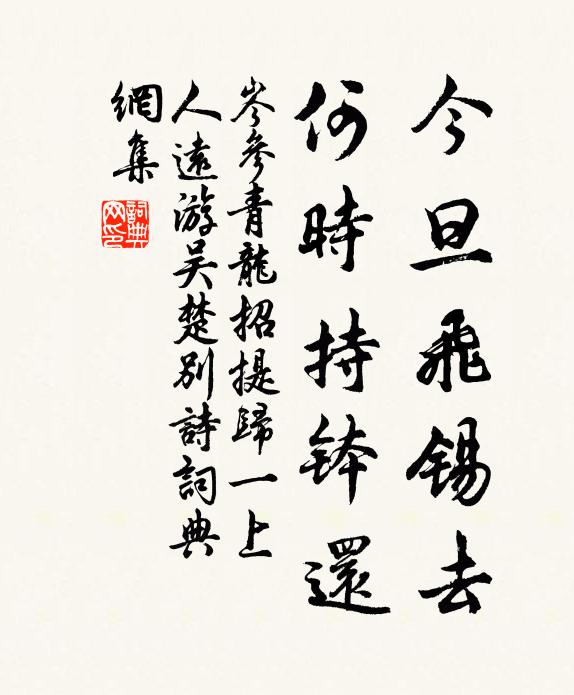 今旦飛錫去
何時持鉢還
岑參青龍招提歸一上
人遠游吳楚別詩詞典
網集
詞典网印